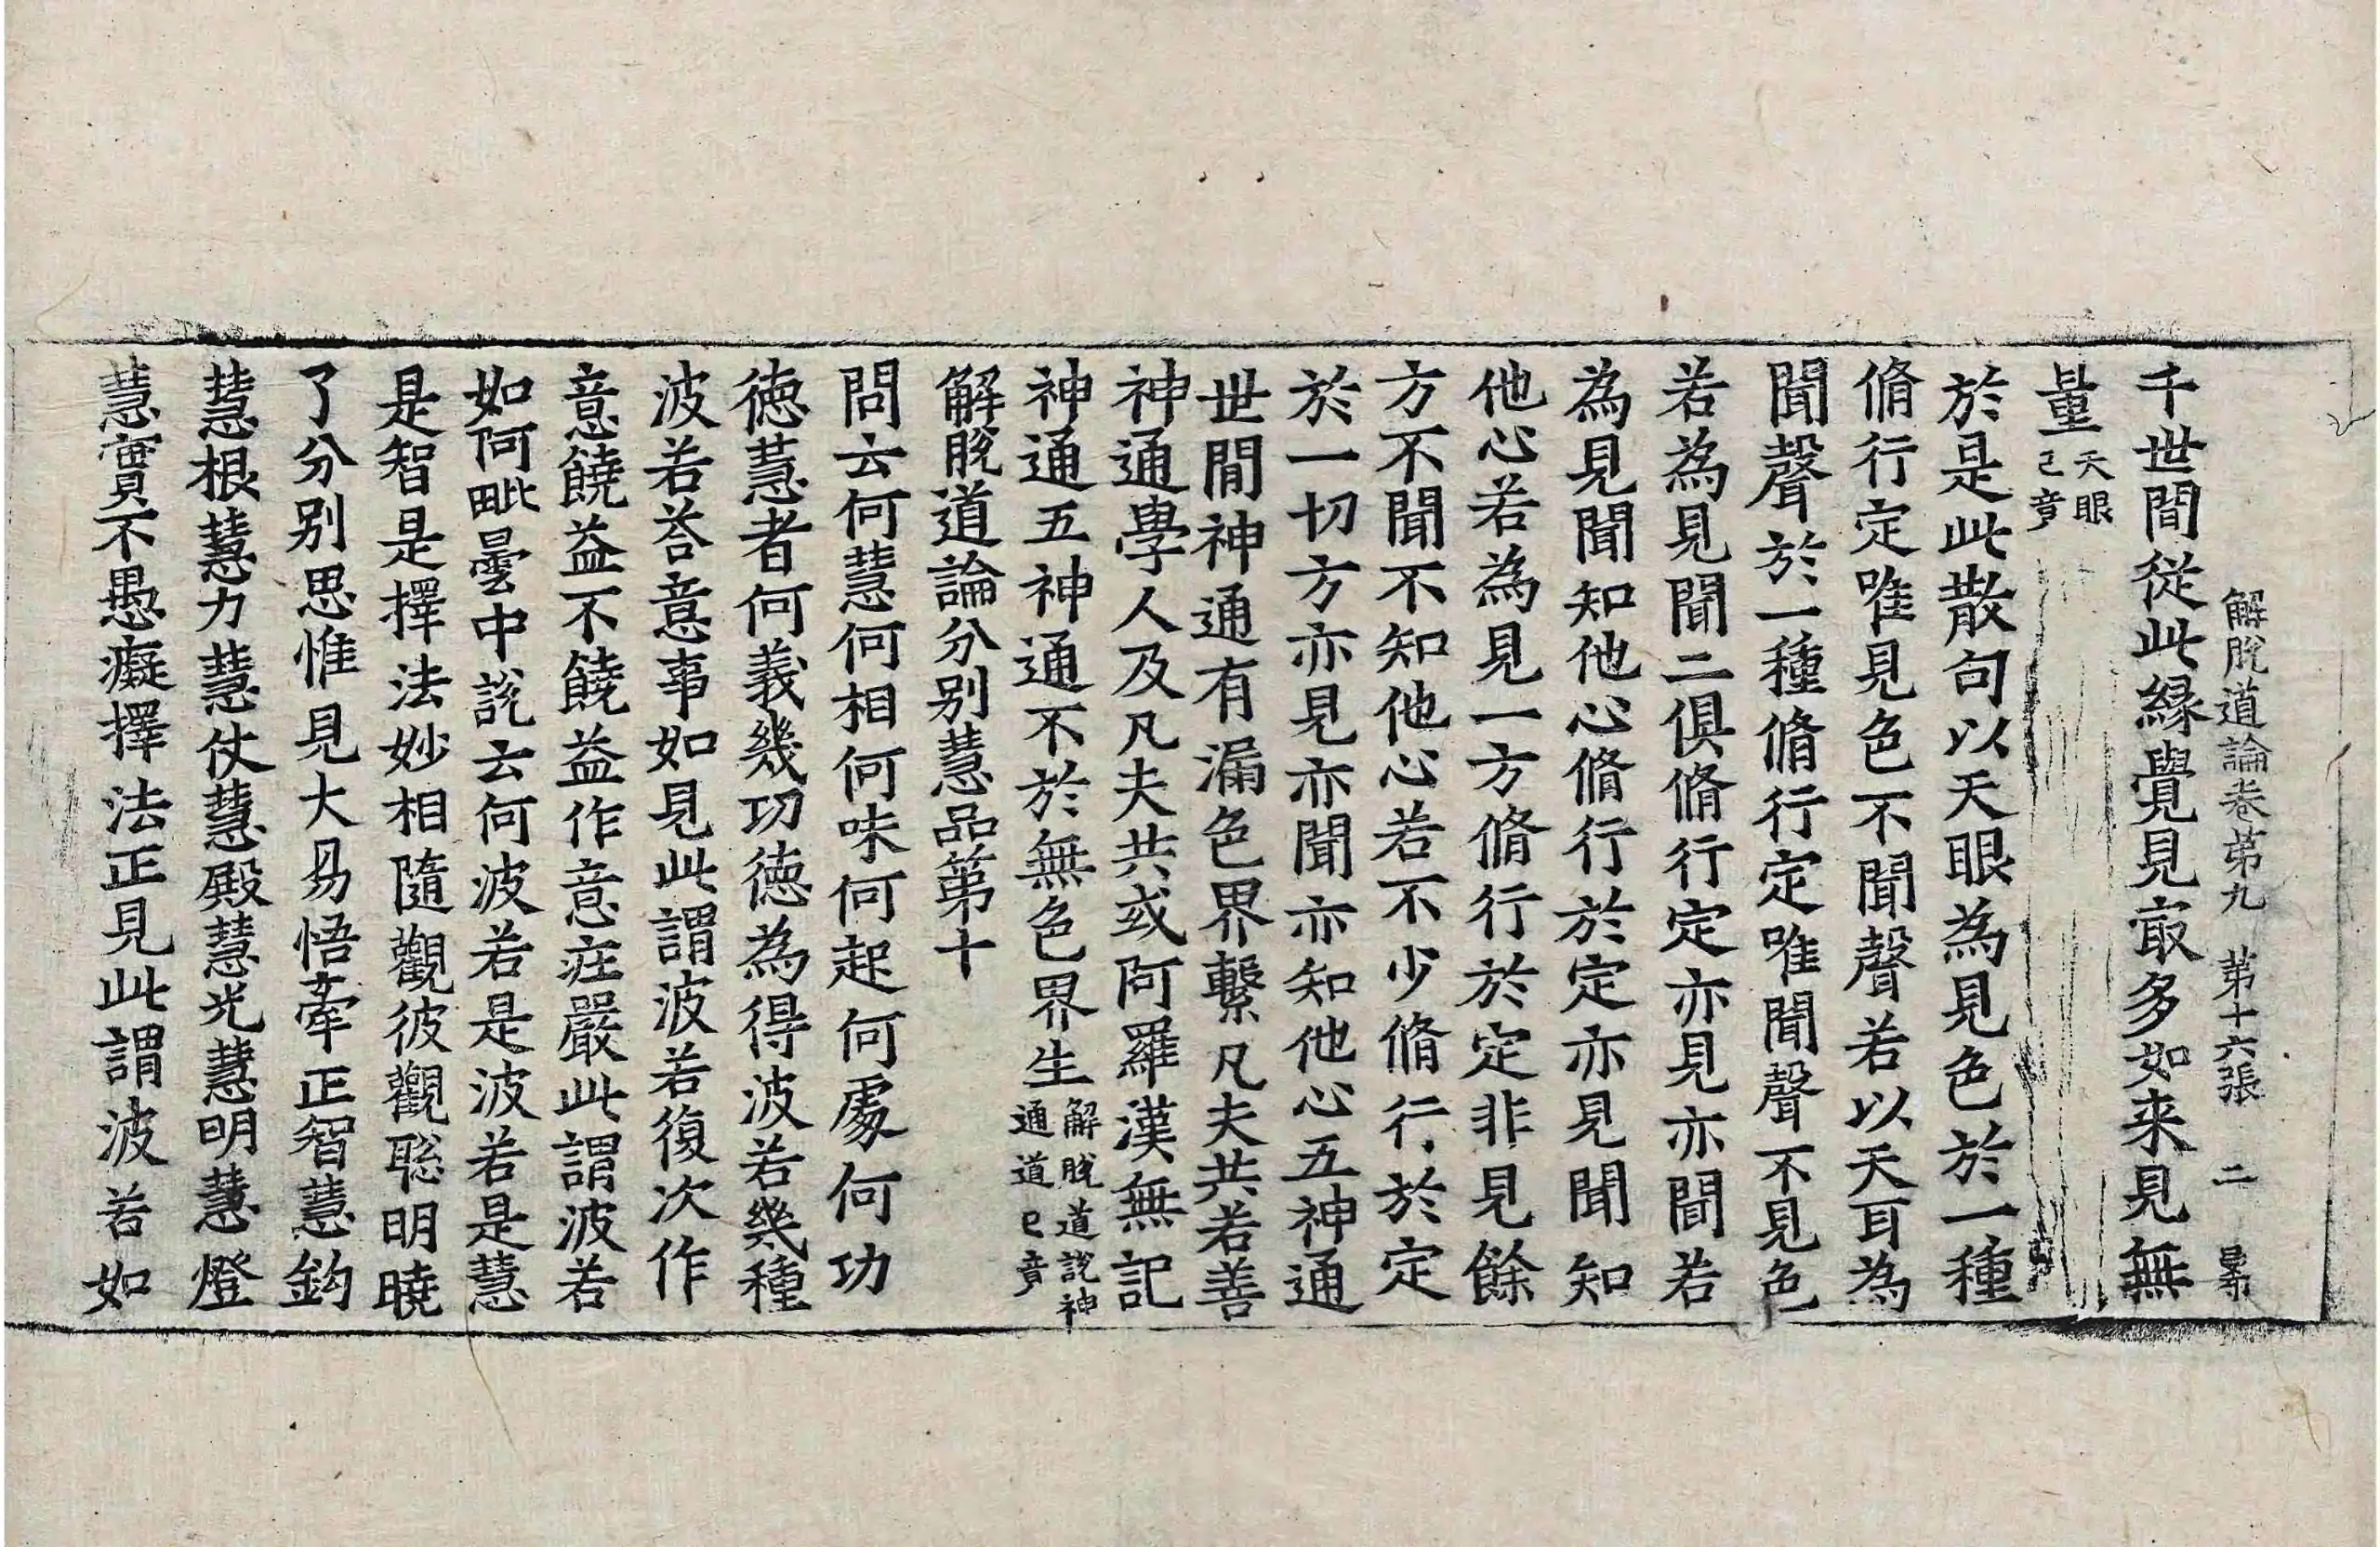 解脫道論卷第九 第十六張 二
千世間從此緣覺見㝡多如来見無
量天眼已竟
於是此散句以天眼為見色於一種
脩行定唯見色不聞聲若以天耳為
聞聲於一種脩行定唯聞聲不見色
若為見聞二俱脩行定亦見亦聞若
為見聞知他心脩行於定亦見聞知
他心若為見一方脩行於定非見餘
方不聞不知他心若不少脩行於定
於一切方亦見亦聞亦知他心五神通
世間神通有漏色界繫凡夫共若善
神通學人及凡夫共或阿羅漢無記
神通五神通不於無色界生解脫道說神通道已竟
解脫道論分別慧品第十
問云何慧何相何味何起何處何功
德慧者何義幾功德為得波若幾種
波若荅意事如見此謂波若復次作
意饒益不饒益作意疘嚴此謂波若
如阿毗曇中說云何波若是波若是慧
是智是擇法妙相隨觀彼觀聡明曉
了分別思惟見大易悟牽正智慧鈎
慧根慧力慧仗慧殿慧光慧明慧燈
慧實不愚癡擇法正見此謂波若如